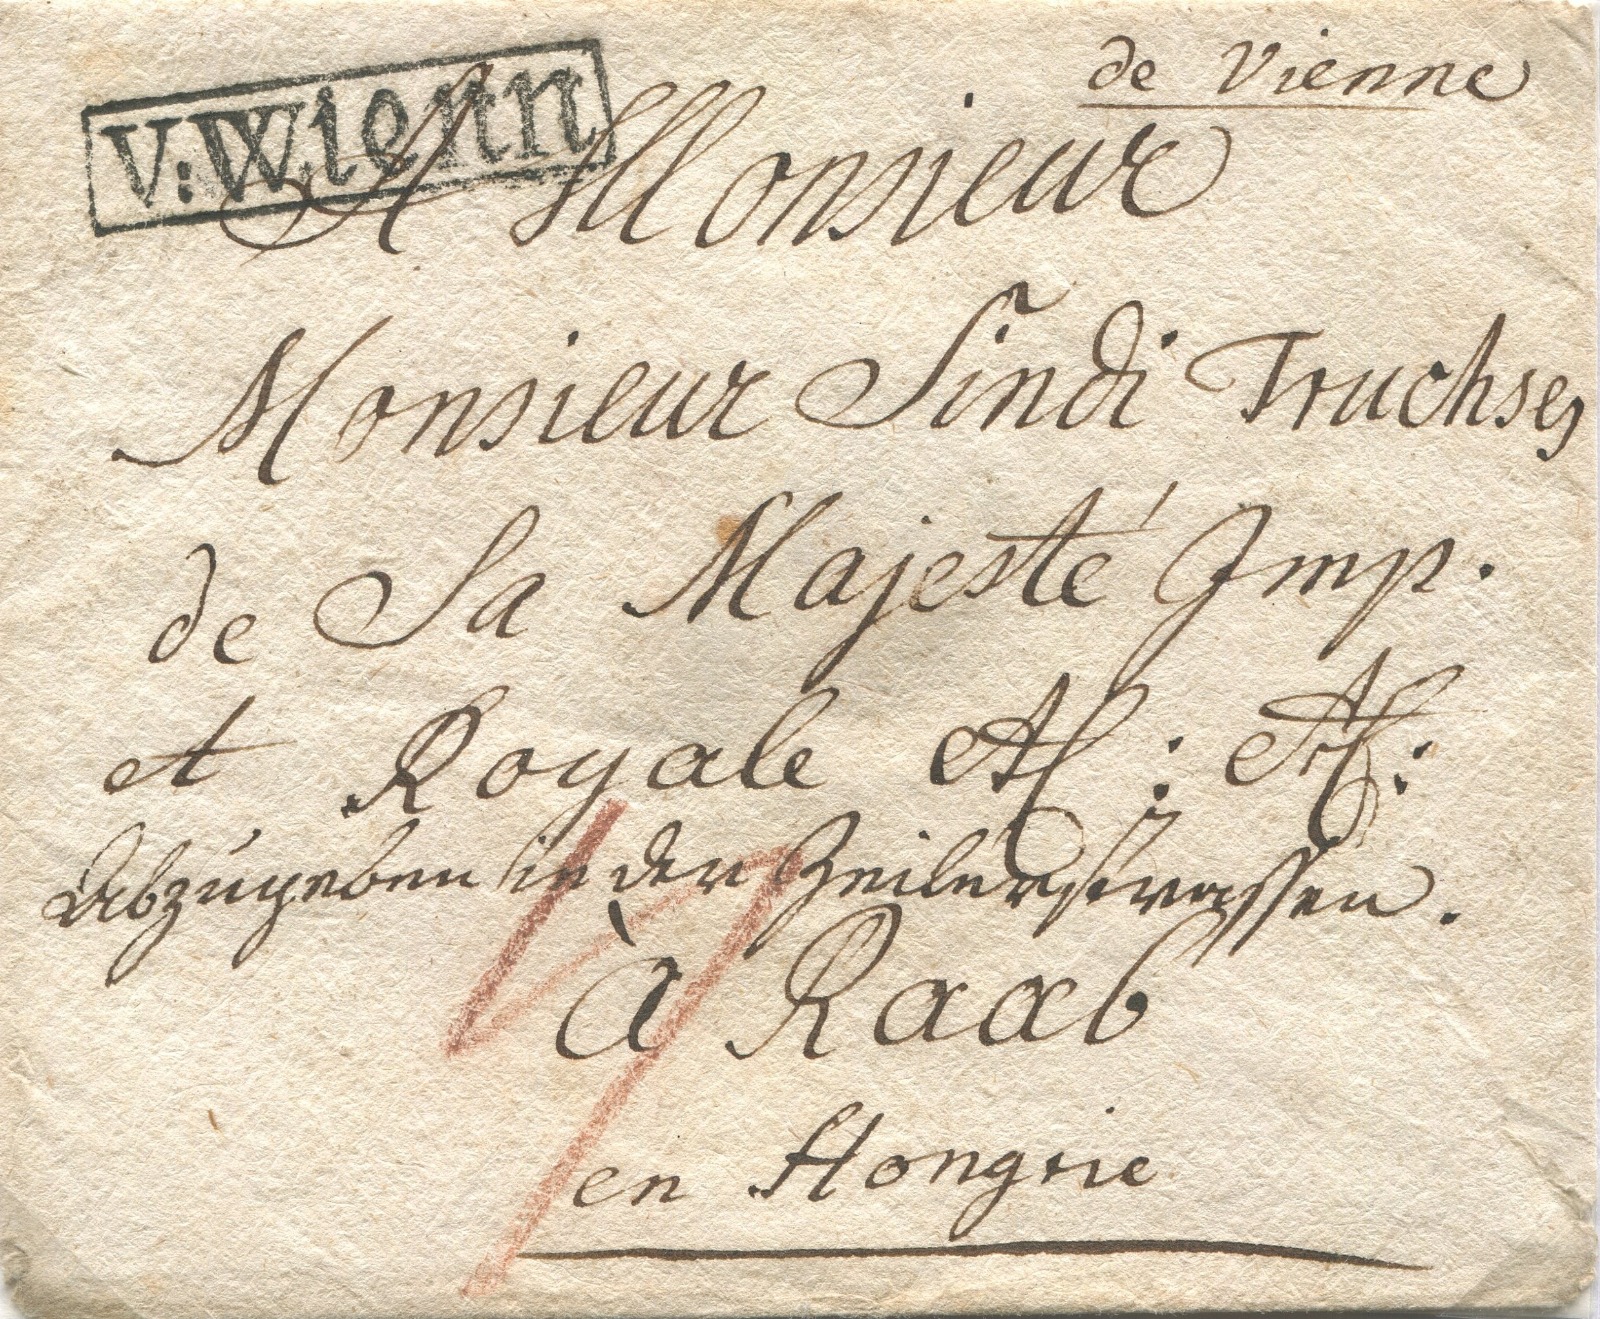 de Vienne
V: Wienn
A Monsieur
Monsieur Sindi Truchses
de Sa Majesté Imp.
et Royale A: A:
Abzugeben in der Zeilerstrassen.
à Raab
en Hongrie